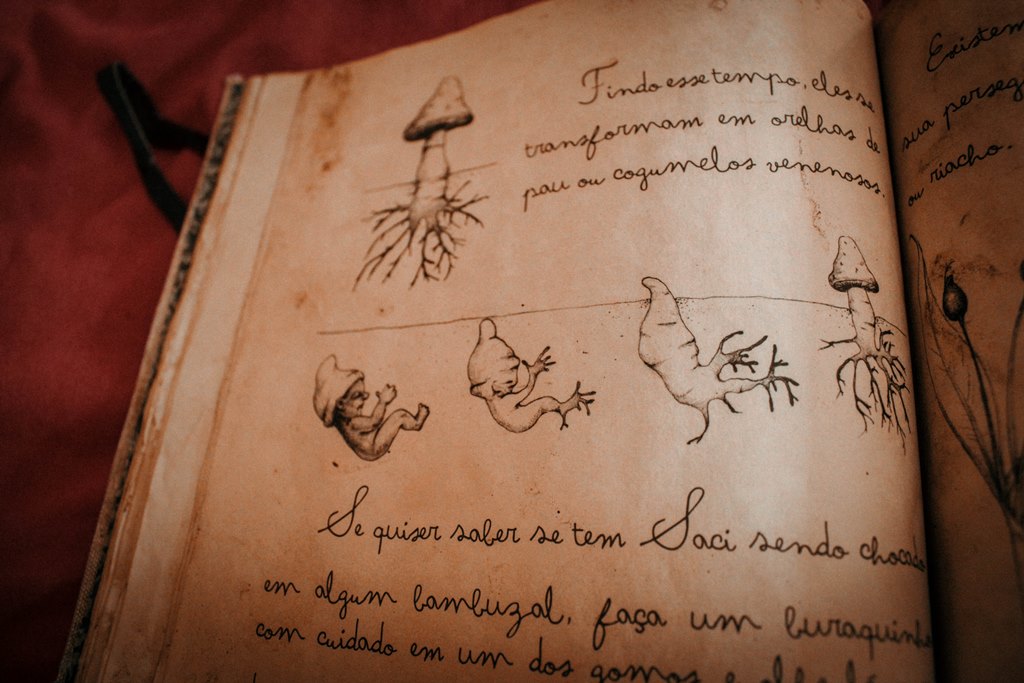 Findo esse tempo, eles se
transformam em orelhas de
pau ou cogumelos venenosos.
Se quiser saber se tem Saci sendo chocado
em algum bambuzal, faça um buraquinho
com cuidado em um dos gomos e
Existem
sua perseg
ou riacho.